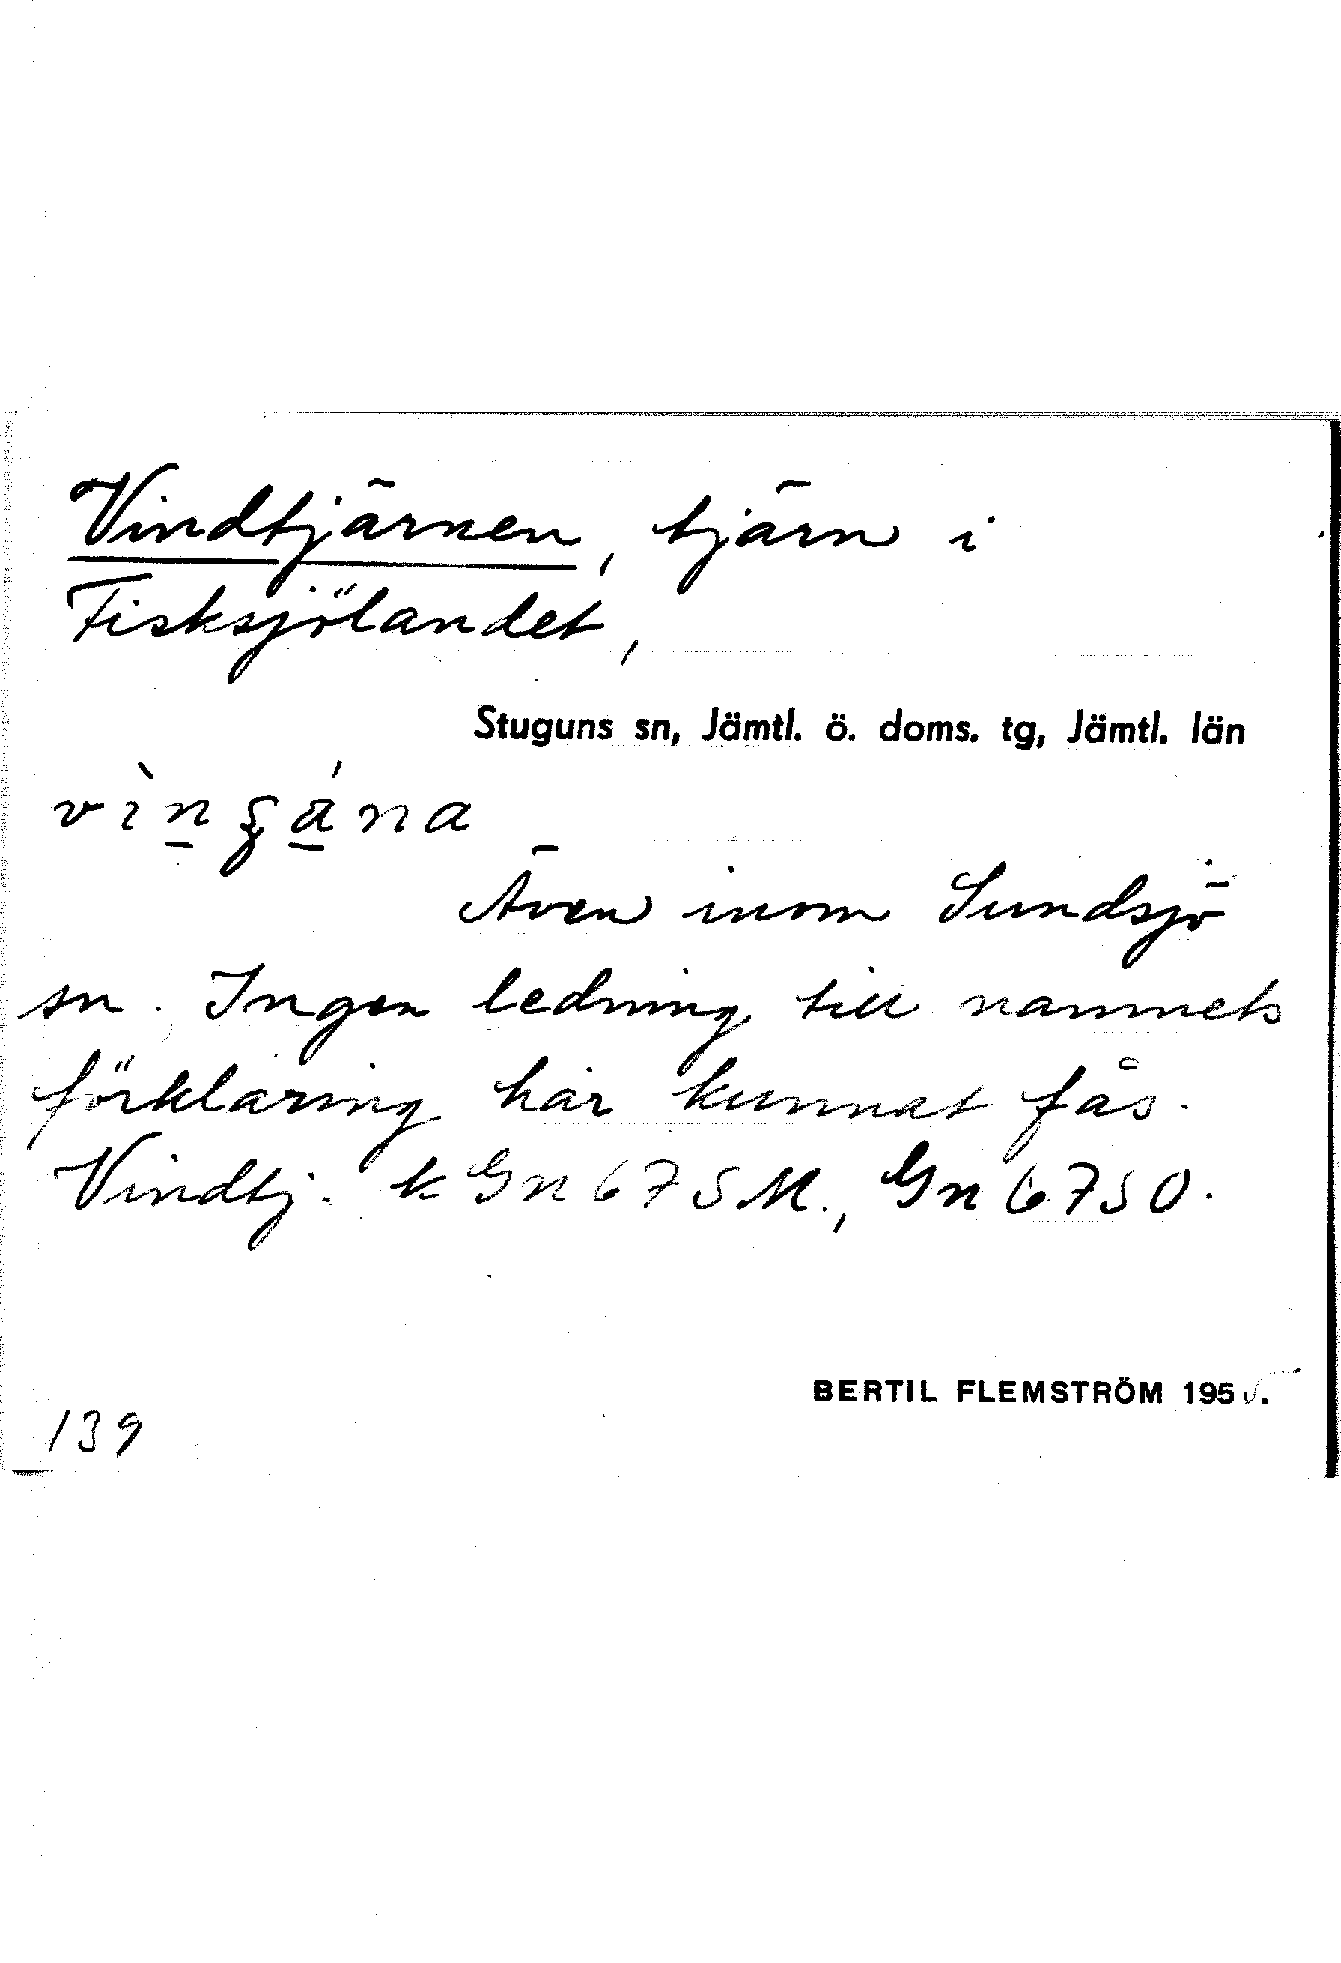 Vindtjärnen, tjärn i
Fisksjölandet,
Stuguns sn, Jämtl. ö. doms. tg, Jämtl. län
Även inom Sundsjö
sn. Ingen ledning till namnets
förklaring har kunnat fås.
Vindtj. k Gn 675 M., Gn 6750.
BERTIL FLEMSTRÖM 1955.
139